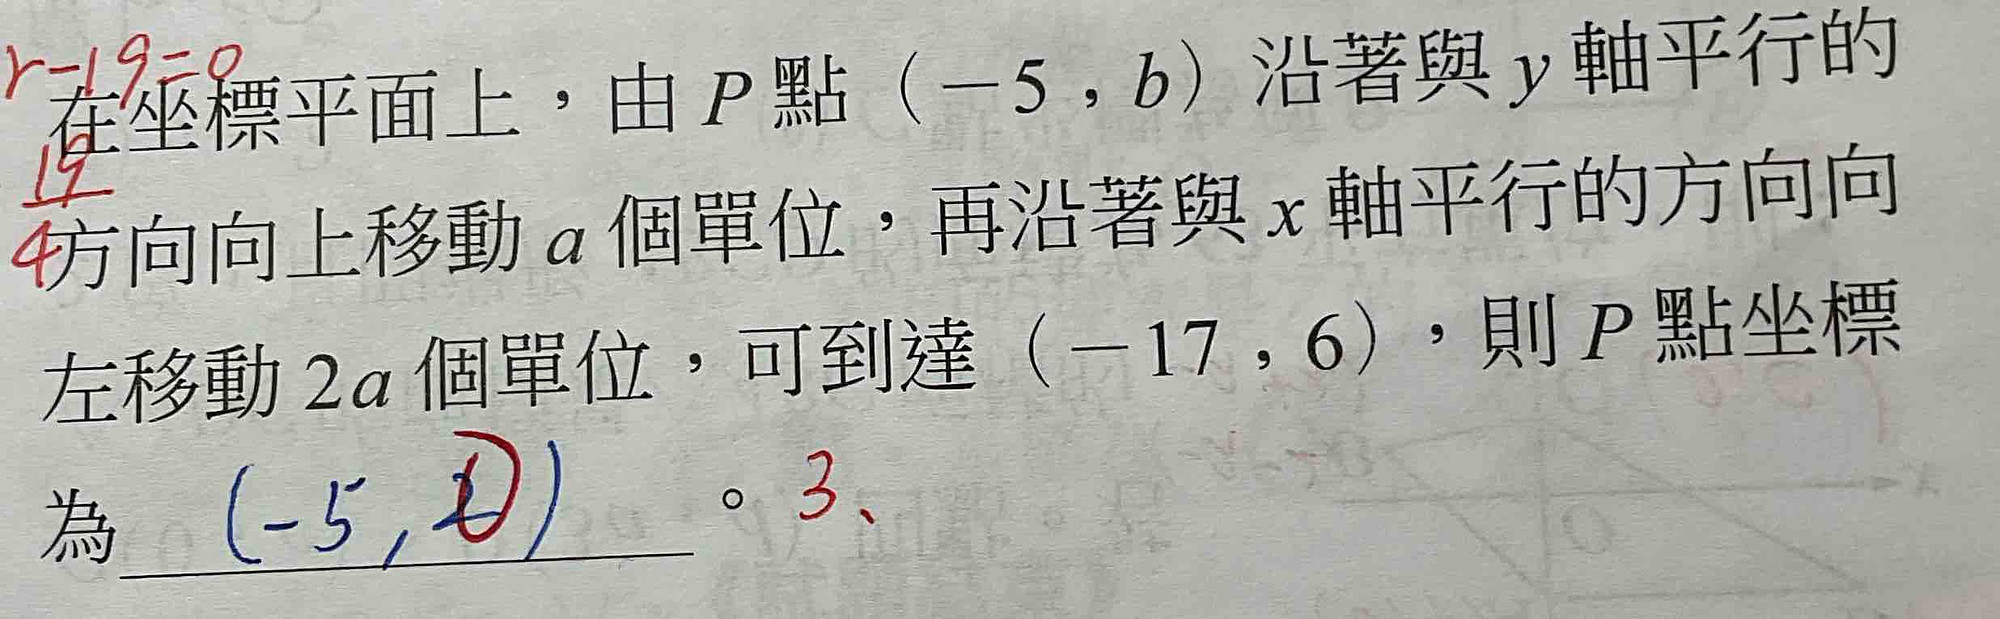 r-19=0
在坐標平面上，由 P 點（－5 , b）沿著與 y 軸平行的
19
4
方向向上移動 a 個單位，再沿著與 x 軸平行的方向向
左移動 2a 個單位，可到達（－17 , 6），則 P 點坐標
為 (-5, ) 。 3、